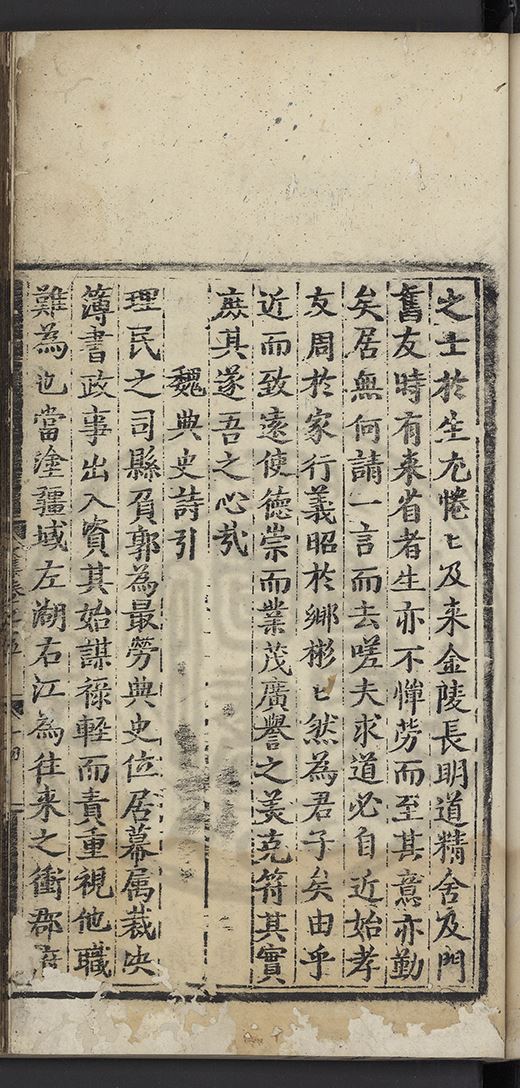 之士於生尤惓〻及来金陵長明道精舍及門
舊友時有来省者生亦不憚労而至其意亦勤
矣居無何請一言而去嗟夫求道必自近始孝
友周於家行義昭於鄉彬〻然為君子矣由乎
近而致遠使德崇而業茂廣譽之美克符其實
庶其遂吾之心㢤
魏典史詩引
理民之司縣負郭為最勞典史位居幕属裁决
簿書政事出入資其始謀祿輕而責重視他職
難為也當塗疆域左湖右江為往来之衝郡府